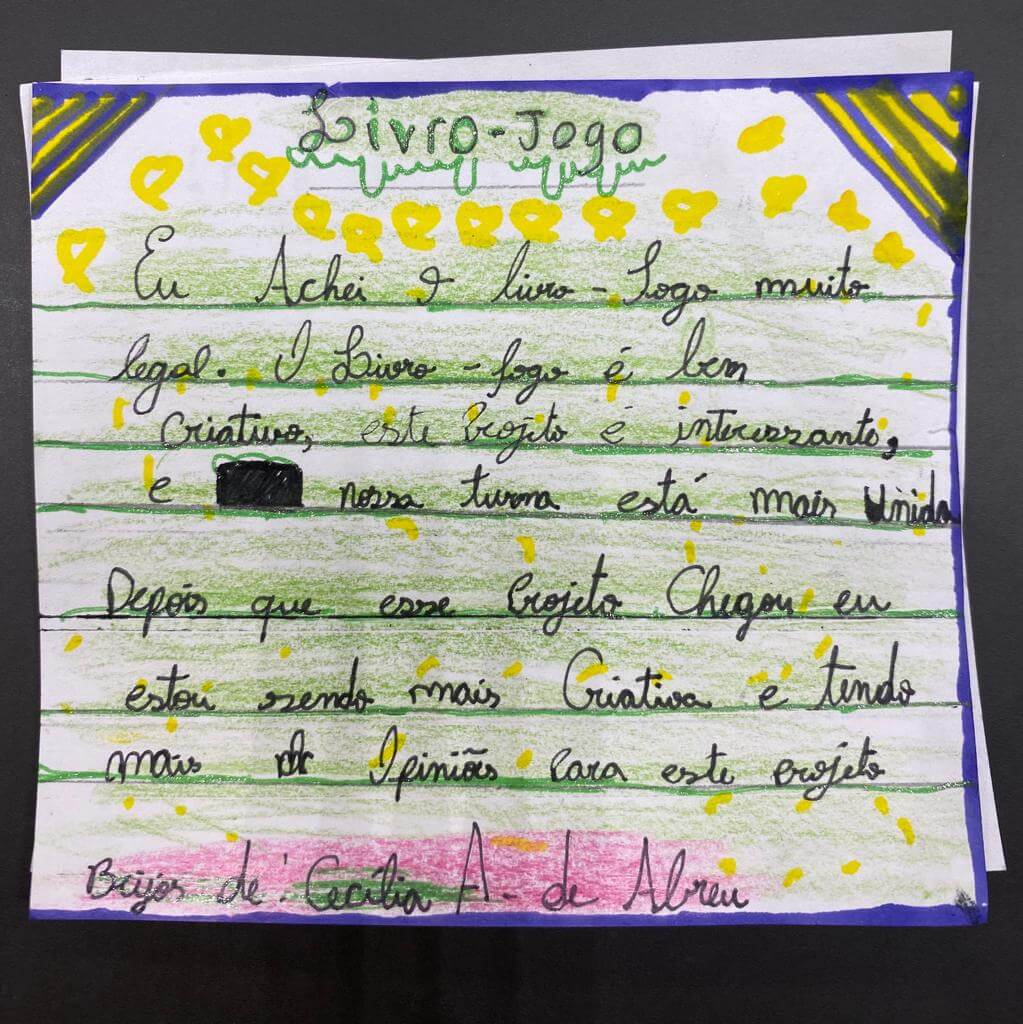 Livro-Jogo
Eu Achei O livro-Jogo muito
legal. O Livro-jogo é bem
criativo, este Projeto é interessante,
e nossa turma está mais Unida
Depois que esse Projeto Chegou eu
estou sendo mais Criativa e tendo
mais Opiniões Para este projeto
Beijos de: Cecília A. de Abreu